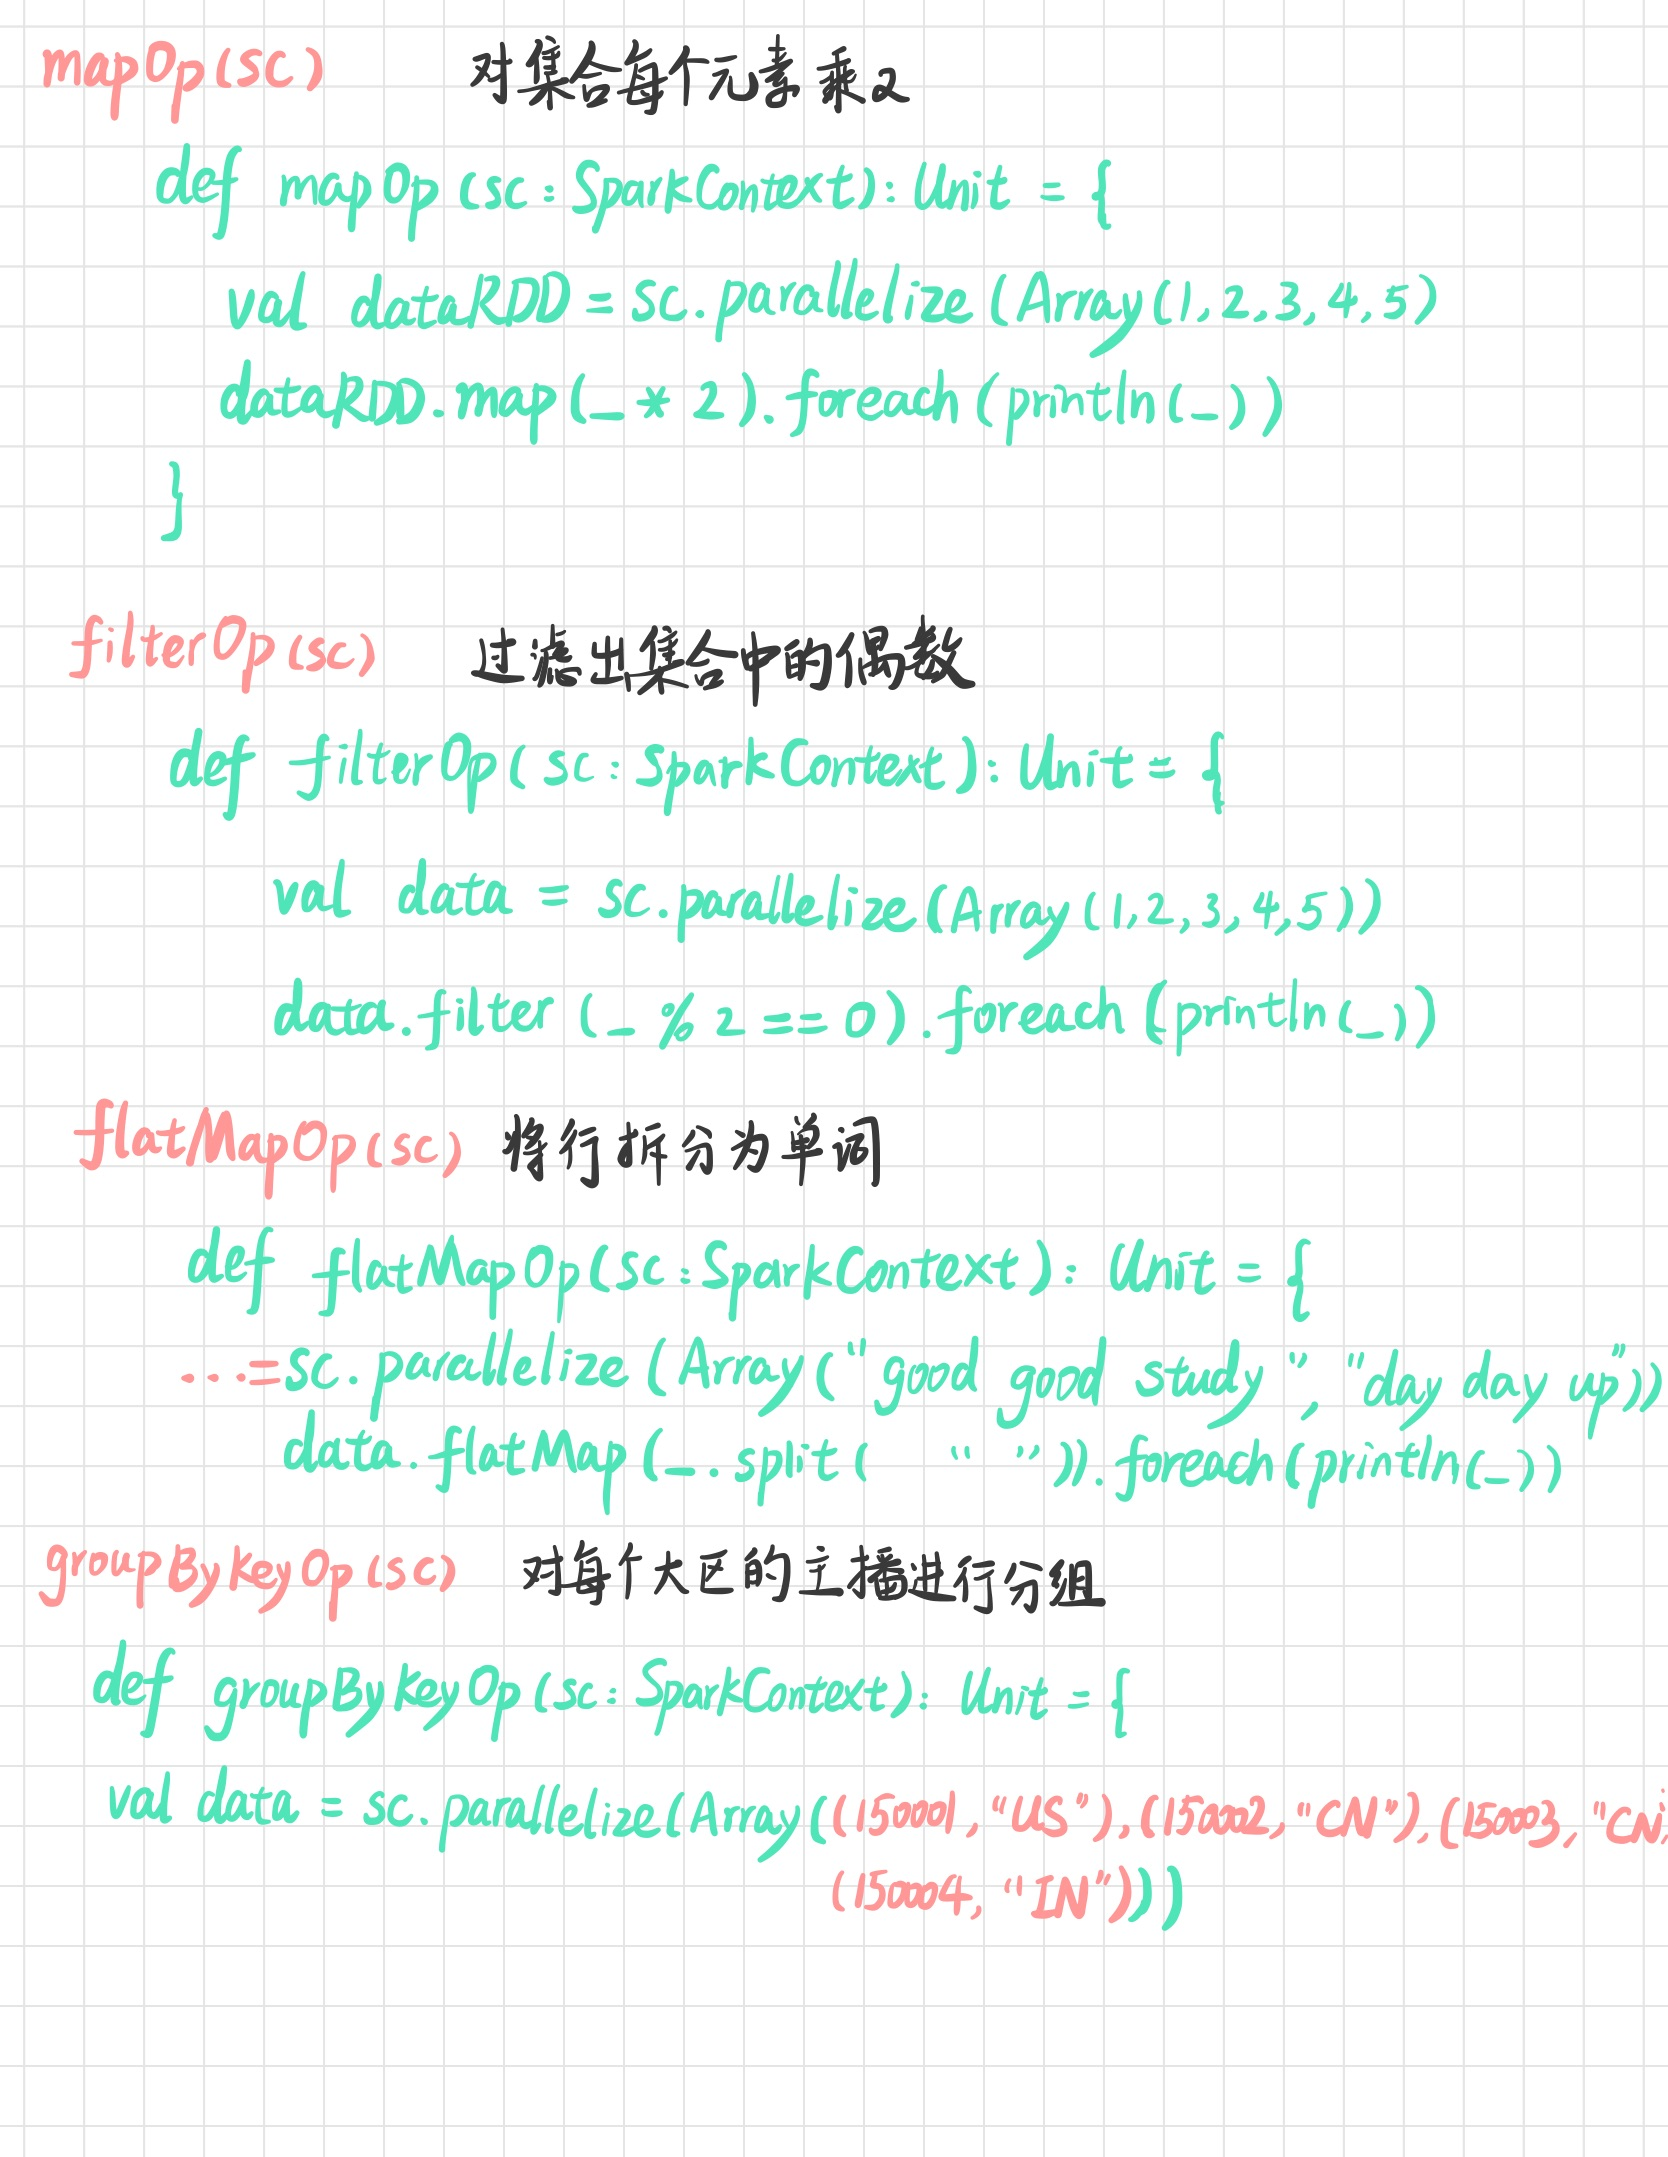 mapOp(sc) 对集合每个元素乘2
def mapOp(sc:SparkContext):Unit = {
val dataRDD = sc.parallelize(Array(1,2,3,4,5)
dataRDD.map(_ * 2).foreach(println(_))
}
filterOp(sc) 过滤出集合中的偶数
def filterOp(sc:SparkContext):Unit = {
val data = sc.parallelize(Array(1,2,3,4,5))
data.filter(_ % 2 == 0).foreach(println(_))
flatMapOp(sc) 将行拆分为单词
def flatMapOp(sc:SparkContext): Unit = {
...=sc.parallelize(Array("good good study","day day up"))
data.flatMap(_.split(" ")).foreach(println(_))
groupByKeyOp(sc) 对每个大区的主播进行分组
def groupByKeyOp(sc:SparkContext): Unit = {
val data = sc.parallelize(Array((150001,"US"),(150002,"CN"),(150003,"CN
(150004,"IN")))